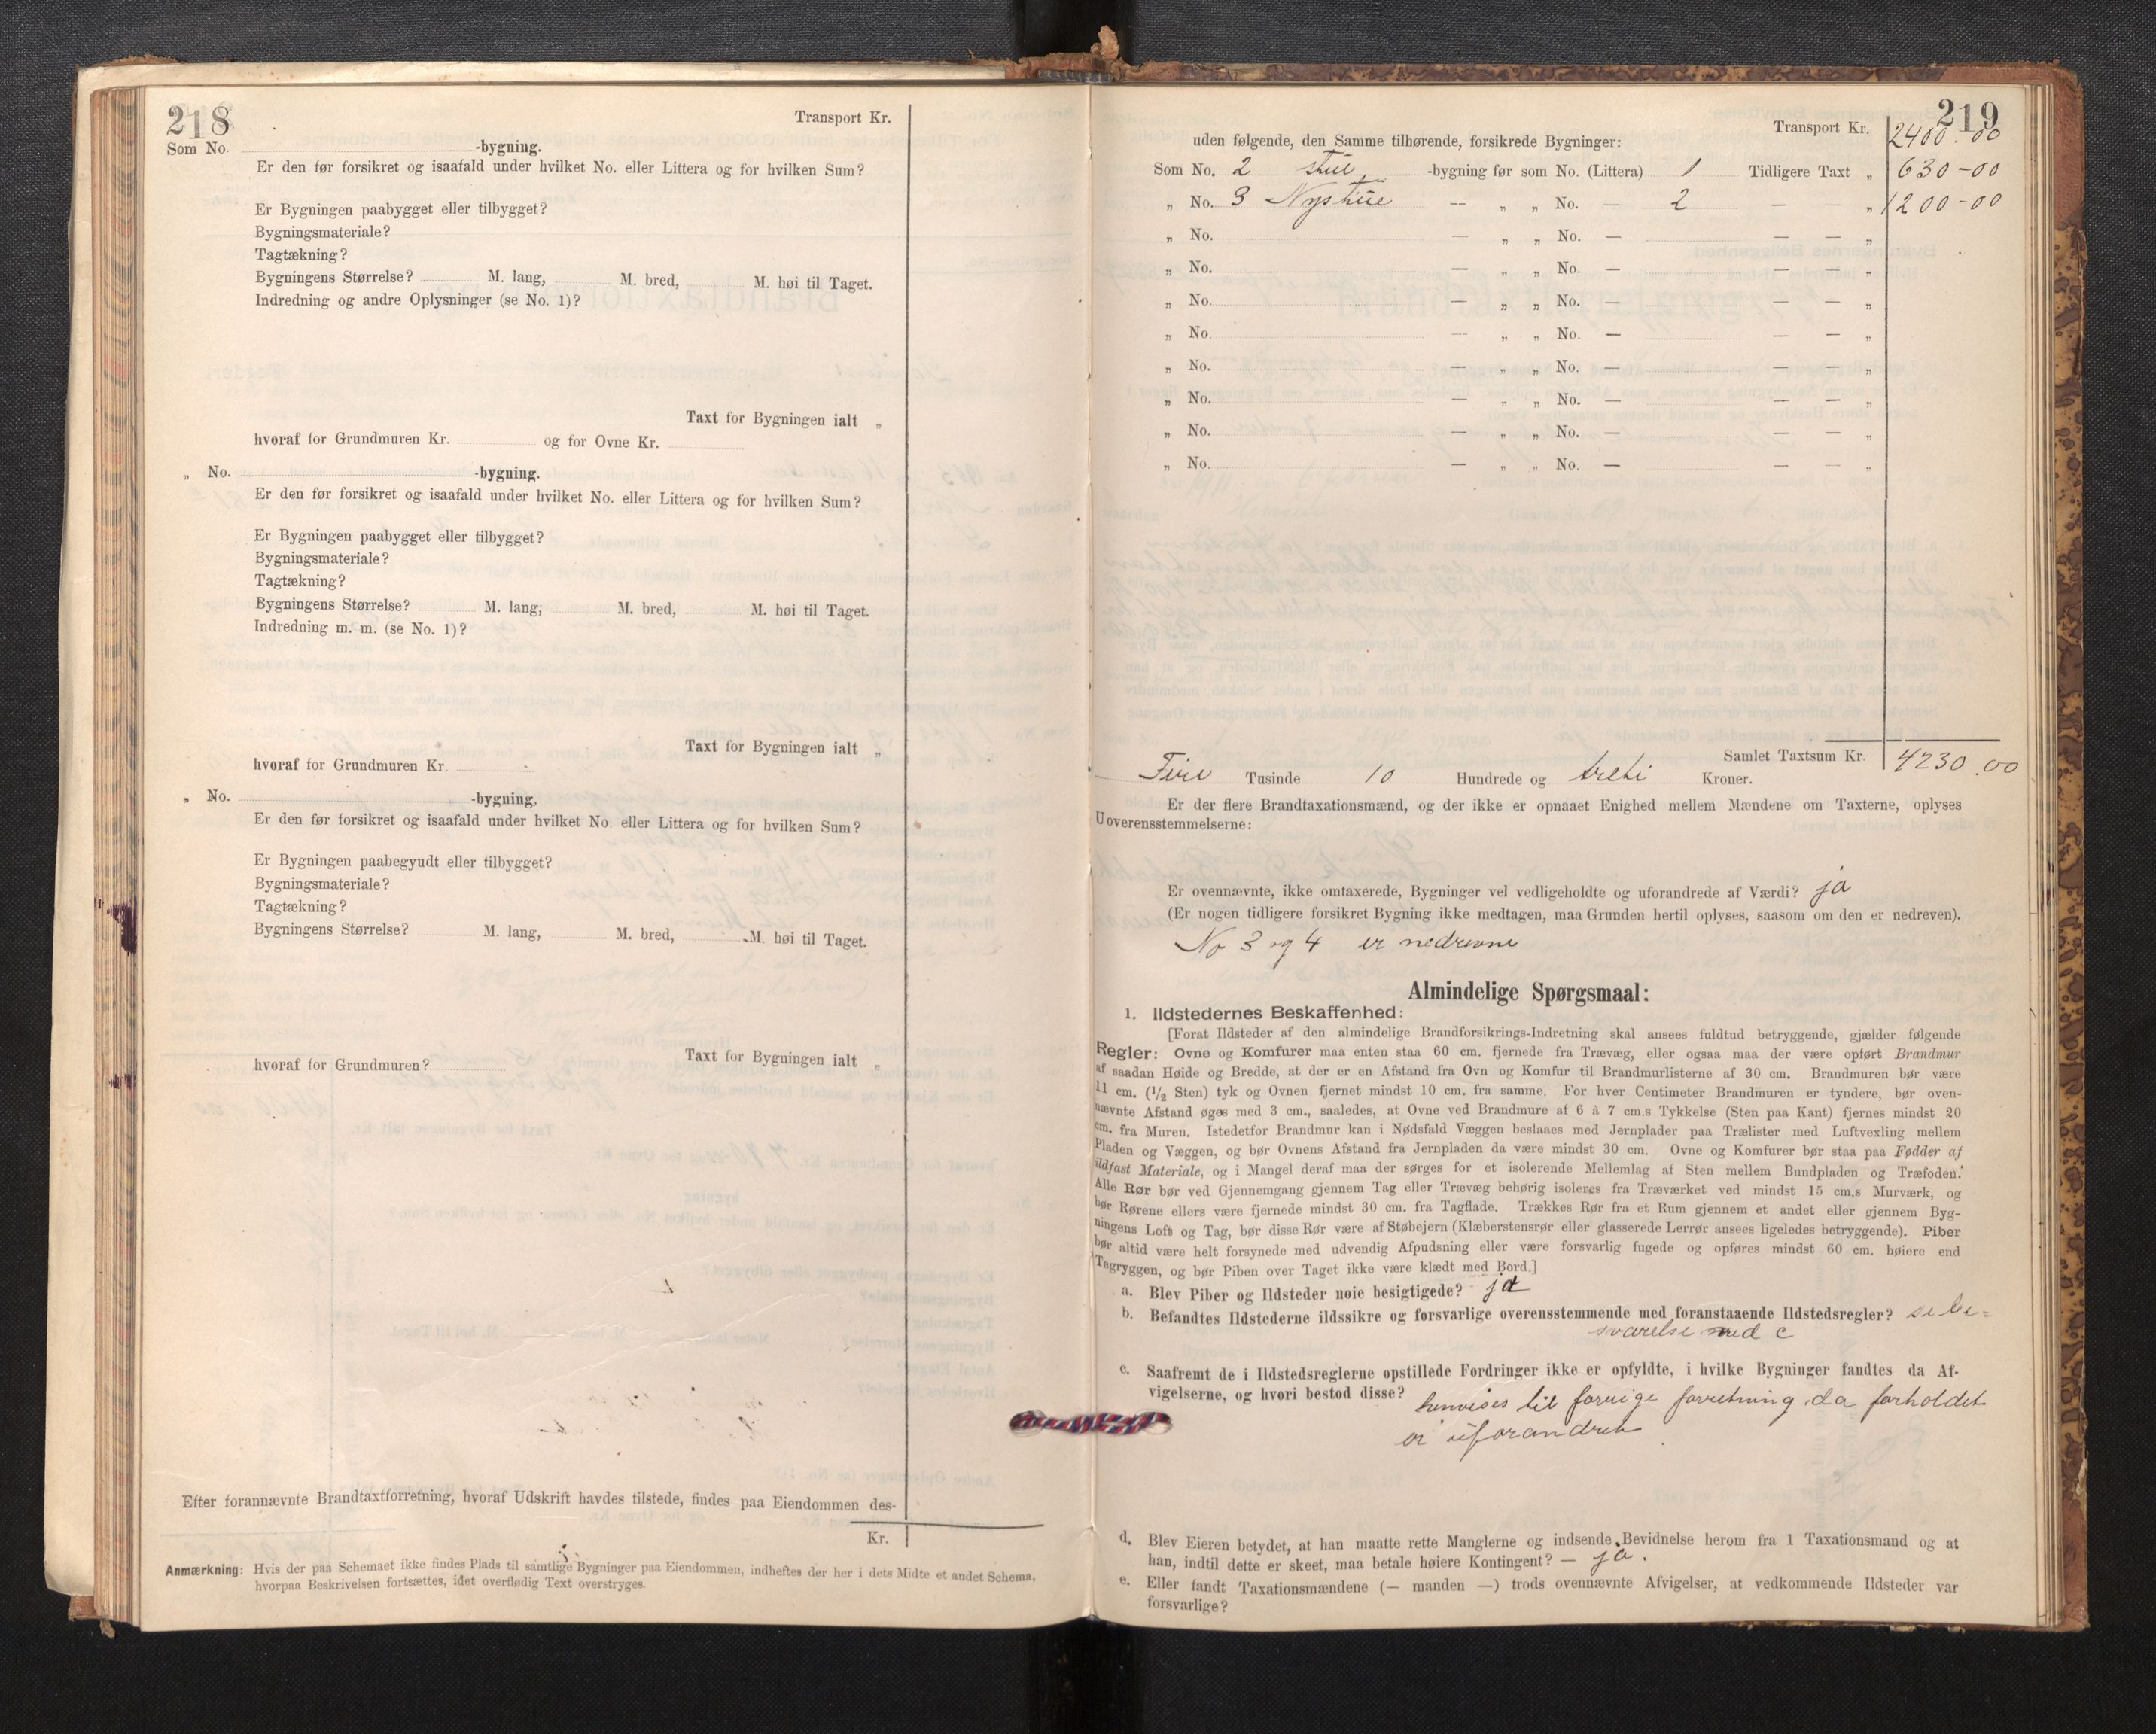 218
Transport Kr.
Som No. -bygning.
Er den før forsikret og isaafald under hvilket No. eller Littera og for hvilken Sum?
Er Bygningen paabygget eller tilbygget?
Bygningsmateriale?
Tagtækning?
Bygningens Størrelse? M. lang, M. bred, M. høi til Taget.
Indredning og andre Oplysninger (se No. 1)?
Taxt for Bygningen ialt „
hvoraf for Grundmuren Kr. og for Ovne Kr.
„ No. -bygning.
Er den før forsikret og isaafald under hvilket No. eller Littera og for hvilken Sum?
Er Bygningen paabygget eller tilbygget?
Bygningsmateriale?
Tagtækning?
Bygningens Størrelse? M. lang, M. bred, M. høi til Taget.
Indredning m. m. (se No. 1)?
Taxt for Bygningen ialt „
hvoraf for Grundmuren Kr.
„ No. -bygning,
Er den før forsikret og isaafald under hvilket No. eller Littera og for hvilken Sum?
Er Bygningen paabegyudt eller tilbygget?
Bygningsmateriale?
Tagtækning?
Bygningens Størrelse? M. lang, M. bred, M. høi til Taget.
Taxt for Bygningen ialt „
hvoraf for Grundmuren?
Efter forannævnte Brandtaxtforretning, hvoraf Udskrift havdes tilstede, findes paa Eiendommen des-
Kr.
Anmærkning: Hvis der paa Schemaet ikke findes Plads til samtlige Bygninger paa Eiendommen, indheftes der her i dets Midte et andet Schema,
hvorpaa Beskrivelsen fortsættes, idet overflødig Text overstryges.
219
Transport Kr. 2400.00
uden følgende, den Samme tilhørende, forsikrede Bygninger:
Som No. 2 stue -bygning før som No. (Littera) 1 Tidligere Taxt „ 630-00
„ No. 3 Nystue — „ „ No. — 2 — — „ 1200-00
„ No. — „ „ No. — — — „
„ No. — „ „ No. — — — „
„ No. — „ „ No. — — — „
„ No. — „ „ No. — — — „
„ No. — „ „ No. — — — „
„ No. — „ „ No. — — — „
„ No. — „ „ No. — — — „
„ No. — „ „ No. — — — „
Samlet Taxtsum Kr. 4230.00
Fire Tusinde 10 Hundrede og treti Kroner.
Er der flere Brandtaxationsmænd, og der ikke er opnaaet Enighed mellem Mændene om Taxterne, oplyses
Uoverensstemmelserne:
Er ovennævnte, ikke omtaxerede, Bygninger vel vedligeholdte og uforandrede af Værdi? ja
(Er nogen tidligere forsikret Bygning ikke medtagen, maa Grunden hertil oplyses, saasom om den er nedreven).
No 3 og 4 er nedrevne
Almindelige Spørgsmaal:
1. Ildstedernes Beskaffenhed:
[Forat Ildsteder af den almindelige Brandforsikrings-Indretning skal ansees fuldtud betryggende, gjælder følgende
Regler: Ovne og Komfurer maa enten staa 60 cm. fjernede fra Trævæg, eller ogsaa maa der være opført Brandmur
af saadan Høide og Bredde, at der er en Afstand fra Ovn og Komfur til Brandmurlisterne af 30 cm. Brandmuren bør være
11 cm. (1/2 Sten) tyk og Ovnen fjernet mindst 10 cm. fra samme. For hver Centimeter Brandmuren er tyndere, bør oven-
nævnte Afstand øges med 3 cm., saaledes, at Ovne ved Brandmure af 6 à 7 cm.s Tykkelse (Sten paa Kant) fjernes mindst 20
cm. fra Muren. Istedetfor Brandmur kan i Nødsfald Væggen beslaaes med Jernplader paa Trælister med Luftvexling mellem
Pladen og Væggen, og bør Ovnens Afstand fra Jernpladen da være mindst 30 cm. Ovne og Komfurer bør staa paa Fødder af
ildfast Materiale, og i Mangel deraf maa der sørges for et isolerende Mellemlag af Sten mellem Bundpladen og Træfoden.
Alle Rør bør ved Gjennemgang gjennem Tag eller Trævæg behørig isoleres fra Træværket ved mindst 15 cm.s Murværk, og
bør Rørene ellers være fjernede mindst 30 cm. fra Tagflade. Trækkes Rør fra et Rum gjennem et andet eller gjennem Byg-
ningens Loft og Tag, bør disse Rør være af Støbejern (Klæberstensrør eller glasserede Lerrør ansees ligeledes betryggende). Piber
bør altid være helt forsynede med udvendig Afpudsning eller være forsvarlig fugede og opføres mindst 60 cm. høiere end
Tagryggen, og bør Piben over Taget ikke være klædt med Bord.]
a. Blev Piber og Ildsteder nøie besigtigede? ja
b. Befandtes Ildstederne ildssikre og forsvarlige overensstemmende med foranstaaende Ildstedsregler? se be=
svarelse ved c
c. Saafremt de i Ildstedsreglerne opstillede Fordringer ikke er opfyldte, i hvilke Bygninger fandtes da Af-
vigelserne, og hvori bestod disse? henvises til forrige forretning, da forholdet
er uforandret
d. Blev Eieren betydet, at han maatte rette Manglerne og indsende Bevidnelse herom fra 1 Taxationsmand og at
han, indtil dette er skeet, maa betale høiere Kontingent? — ja.
e. Eller fandt Taxationsmændene (— manden —) trods ovennævnte Afvigelser, at vedkommende Ildsteder var
forsvarlige?